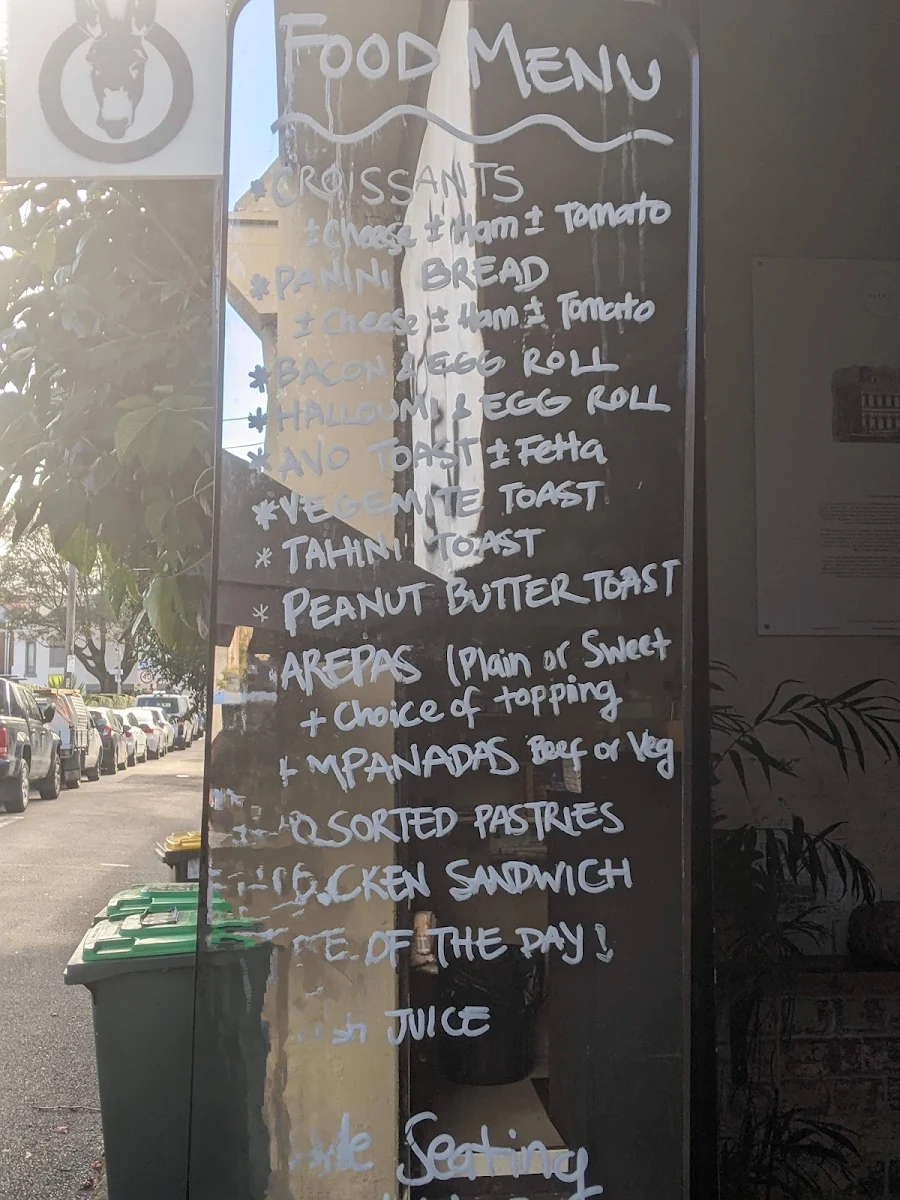 FOOD MENU
* CROISSANTS
± Cheese ± Ham ± Tomato
* PANINI BREAD
± Cheese ± Ham ± Tomato
* BACON & EGG ROLL
* HALLOUMI & EGG ROLL
* AVO TOAST ± Fetta
* VEGEMITE TOAST
* TAHINI TOAST
* PEANUT BUTTER TOAST
AREPAS (Plain or Sweet
+ Choice of topping
MPANADAS Beef or Veg
SORTED PASTRIES
CKEN SANDWICH
OF THE DAY!
JUICE
Seating